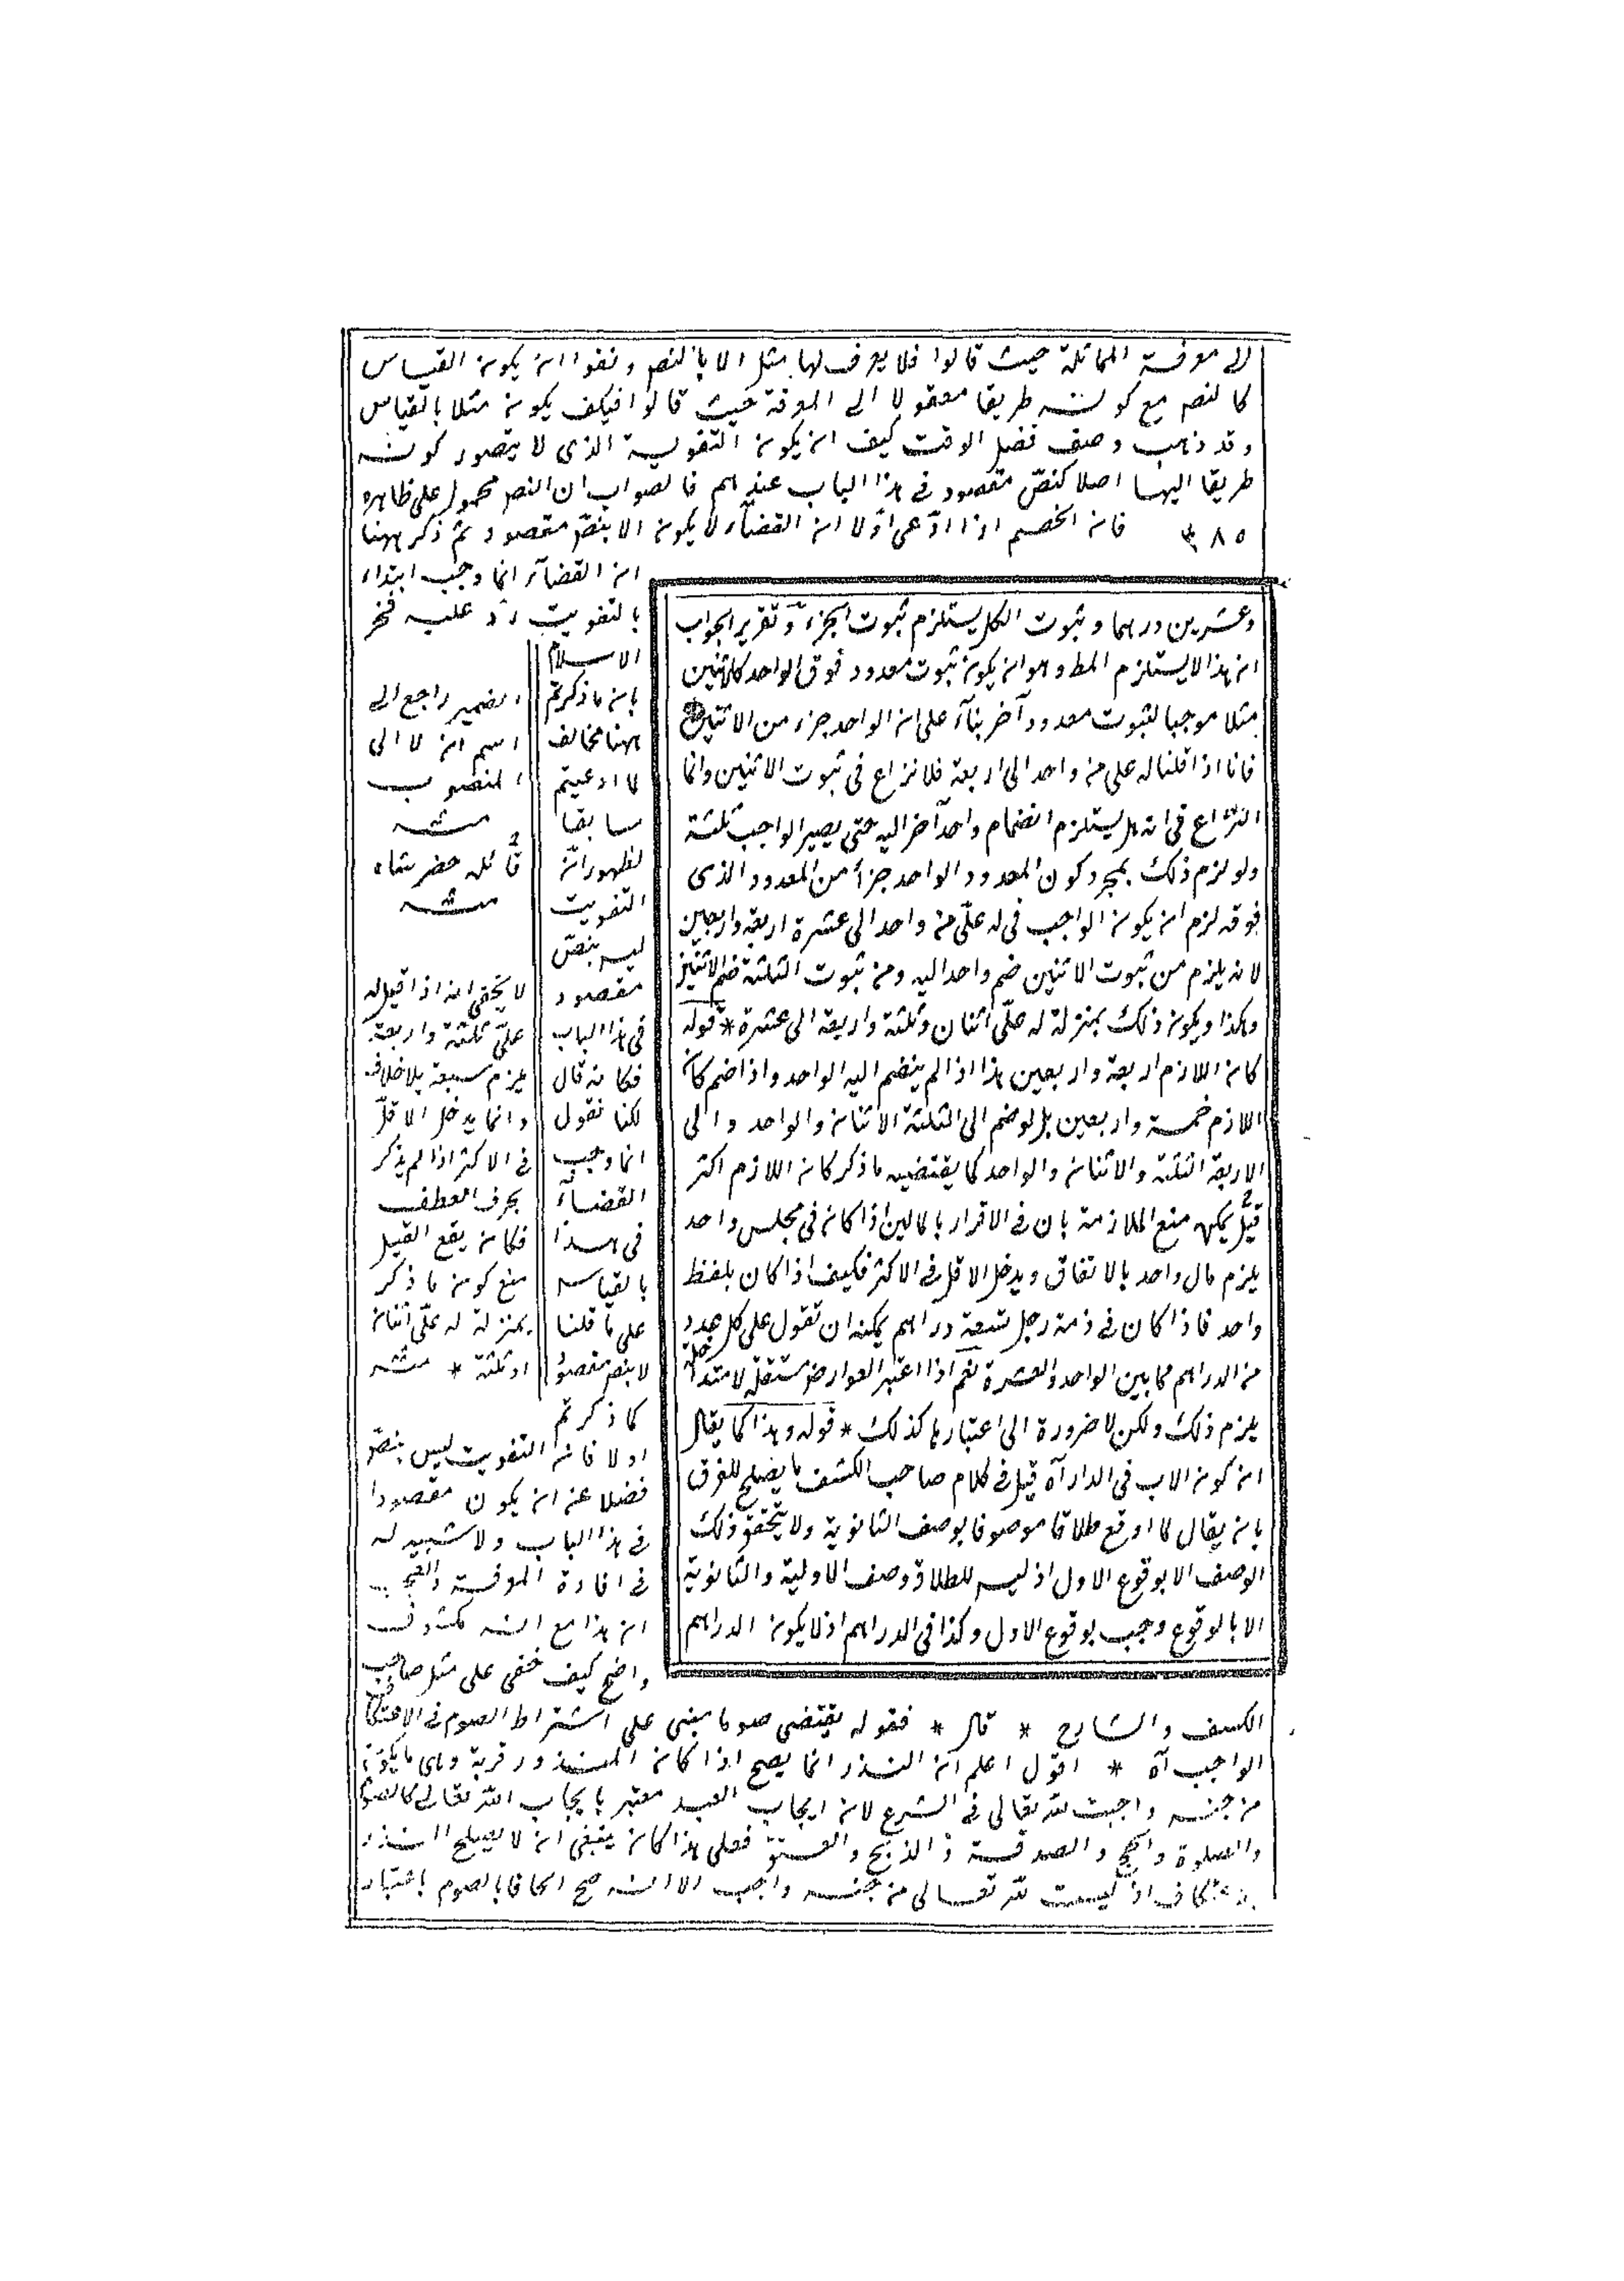 الى معرفة المماثلة حيث قالوا فلا يعرف لها مثل الا بالنص ونفوا ان يكون القياس
كالنص مع كونه طريقا معقولا الى المعرفة حيث قالوا فكيف يكون مثلا بالقياس
وقد ذهب وصف فضل الوقت كيف ان يكون التفويت الذى لا يتصور كونه
طريقا اليها اصلا كنصّ مقصود فى هذا الباب عندهم فالصواب ان النص محمول على ظاهره
٣٨٥
فان الخصم اذا ادّعى اوّلا ان القضآء لا يكون الا بنصّ مقصود ثم ذكر ههنا
ان القضآء انما وجب ابتداء
بالتفويت ردّ عليه فخر
الاسلام
بان ما ذكرتم
ههنا مخالف
لما ادعيتم
سابقا
لظهور انّ
التفويت
ليس بنصّ
مقصود
فى هذا الباب
فكانه قال
لكنا نقول
انما وجب
القضآء
فى هذا
بالقياس
على ما قلنا
لا بنص مقصود
كما ذكرتم
اولا فان التفويت ليس بنصّ
فضلا عن ان يكون مقصودا
فى هذا الباب ولا شبيه له
فى افادة المعرفة والعجب
ان هذا مع انه مكشوف
واضح كيف خفى على مثل صاحب
الكشف والشارح * قال * فقوله يقتضى صوما مبنى على اشتراط الصوم فى الاعتكاف
الواجب آه * اقول اعلم ان النذر انما يصح اذا كان المنذور قربة وهى ما يكون
من جنسه واجبت لله تعالى فى الشرع لان ايجاب العبد معتبر بايجاب الله تعالى كالصوم
والصلوة والحج والصدقة و الذبح والعتق فعلى هذا كان ينبغى ان لا يصلح النذر
بالاعتكاف اذ ليست لله تعالى من جنسه واجب الا انه صح الحاقا بالصوم باعتبار
وعشرين درهما وثبوت الكل يستلزم ثبوت الجزء وتقرير الجواب
ان هذا لا يستلزم المط وهو ان يكون ثبوت معدود فوق الواحد كالاثنين
مثلا موجبا لثبوت معدود آخر بنآء على ان الواحد جزء من الاثنين
فانا اذا قلنا له على من واحد الى اربعة فلا نزاع فى ثبوت الاثنين وانما
النزاع فى انه هل يستلزم انضمام واحد آخر اليه حتى يصير الواجب ثلثة
ولو لزم ذلك بمجرد كون المعدود الواحد جزأ من المعدود الذى
فوقه لزم ان يكون الواجب فى له علىّ من واحد الى عشرة اربعة واربعين
لانه يلزم من ثبوت الاثنين ضم واحد اليه ومن ثبوت الثلثة ضم الاثنين
وهكذا ويكون ذلك بمنزلة له علىّ اثنان وثلثة واربعة الى عشرة * قوله
كان اللازم اربعة واربعين هذا اذا لم ينضم اليه الواحد واذا ضم كان
اللازم خمسة واربعين بل لو ضم الى الثلثة الاثنان والواحد والى
الاربعة الثلثة والاثنان والواحد كما يقتضيه ما ذكر كان اللازم اكثر
قيل يمكن منع الملازمة بان فى الاقرار بالمالين اذا كان فى مجلس واحد
يلزم مال واحد بالاتفاق ويدخل الاقل فى الاكثر فكيف اذا كان بلفظ
واحد فاذا كان فى ذمة رجل تسعة دراهم يمكنه ان تقول على كل عدد
من الدراهم مما بين الواحد والعشرة نعم اذا اعتبر العوارض مستقلة لا متداخلة
يلزم ذلك ولكن لا ضرورة الى اعتبارها كذلك * قوله وهذا كما يقال
ان كون الاب فى الدار آه قيل فى كلام صاحب الكشف ما يصلح للفرق
بان يقال لما اوقع طلاقا موصوفا بوصف الثانوية ولا يتحقق ذلك
الوصف الا بوقوع الاول اذ ليس للطلاق وصف الاولية والثانوية
الا بالوقوع وجب بوقوع الاول وكذا فى الدراهم اذ لا يكون الدراهم
الضمير راجع الى
اسم ان لا الى
المنصوب
منه
قائله خضر شاه
منه
لا يخفى انه اذا قيل له
علىّ ثلثة واربعة
يلزم سبعة بلا خلاف
وانما يدخل الاقلّ
فى الاكثر اذا لم يذكر
بحرف العطف
فكان يقع القيل
منع كون ما ذكر
بمنزلة له علىّ اثنان
او ثلثة * منه